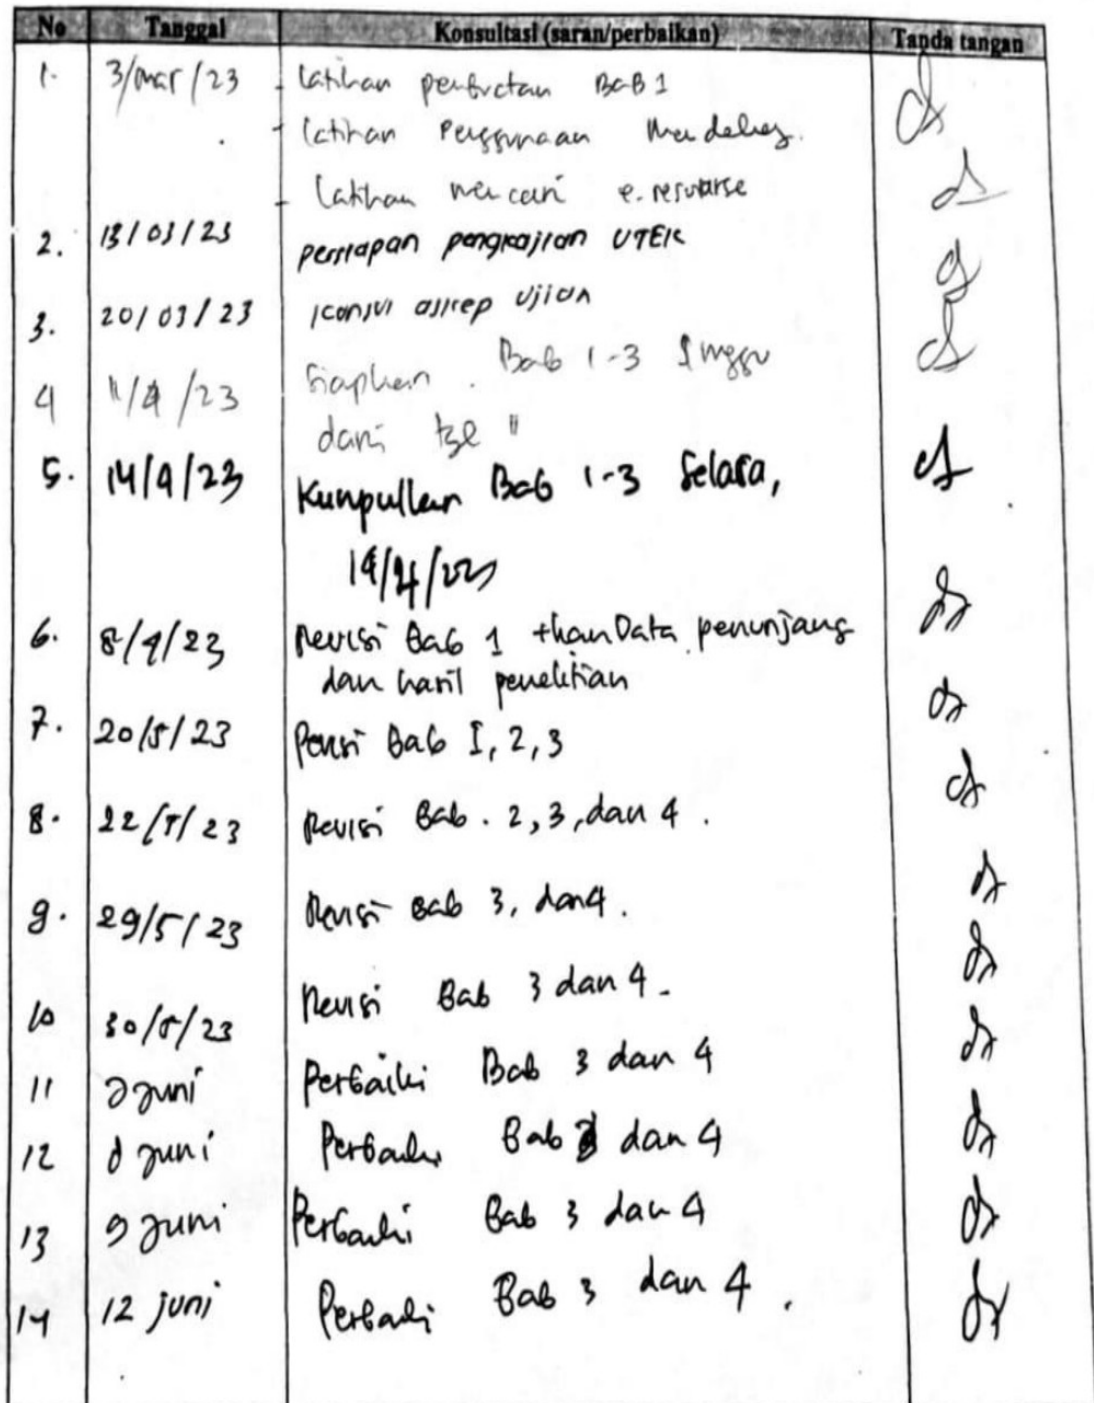 No Tanggal Konsultasi (saran/perbaikan) Tanda tangan
1. 3/mar/23 - Latihan pembuatan BAB 1
- latihan Penggunaan Mendeley.
- Latihan mencari e. resourse
2. 13/03/23 persiapan pengkajian UTEK
3. 20/03/23 konsul askep Ujian
4 11/4/23 Siapkan . Bab 1-3 1 minggu
dari tgl "
5. 14/4/23 Kumpulkan Bab 1-3 Selasa,
6. 8/4/23 Revisi Bab 1 Data penunjang
dan hasil penelitian
7. 20/5/23 Revisi Bab I, 2, 3
8. 22/5/23 Revisi Bab. 2, 3, dan 4.
9. 29/5/23 Revisi Bab 3, dan 4.
10 30/5/23 Revisi Bab 3 dan 4.
11 juni Perbaiki Bab 3 dan 4
12 juni Perbaiki Bab dan 4
13 9 juni Perbaiki Bab 3 dan 4
14 12 juni Perbaiki Bab 3 dan 4.